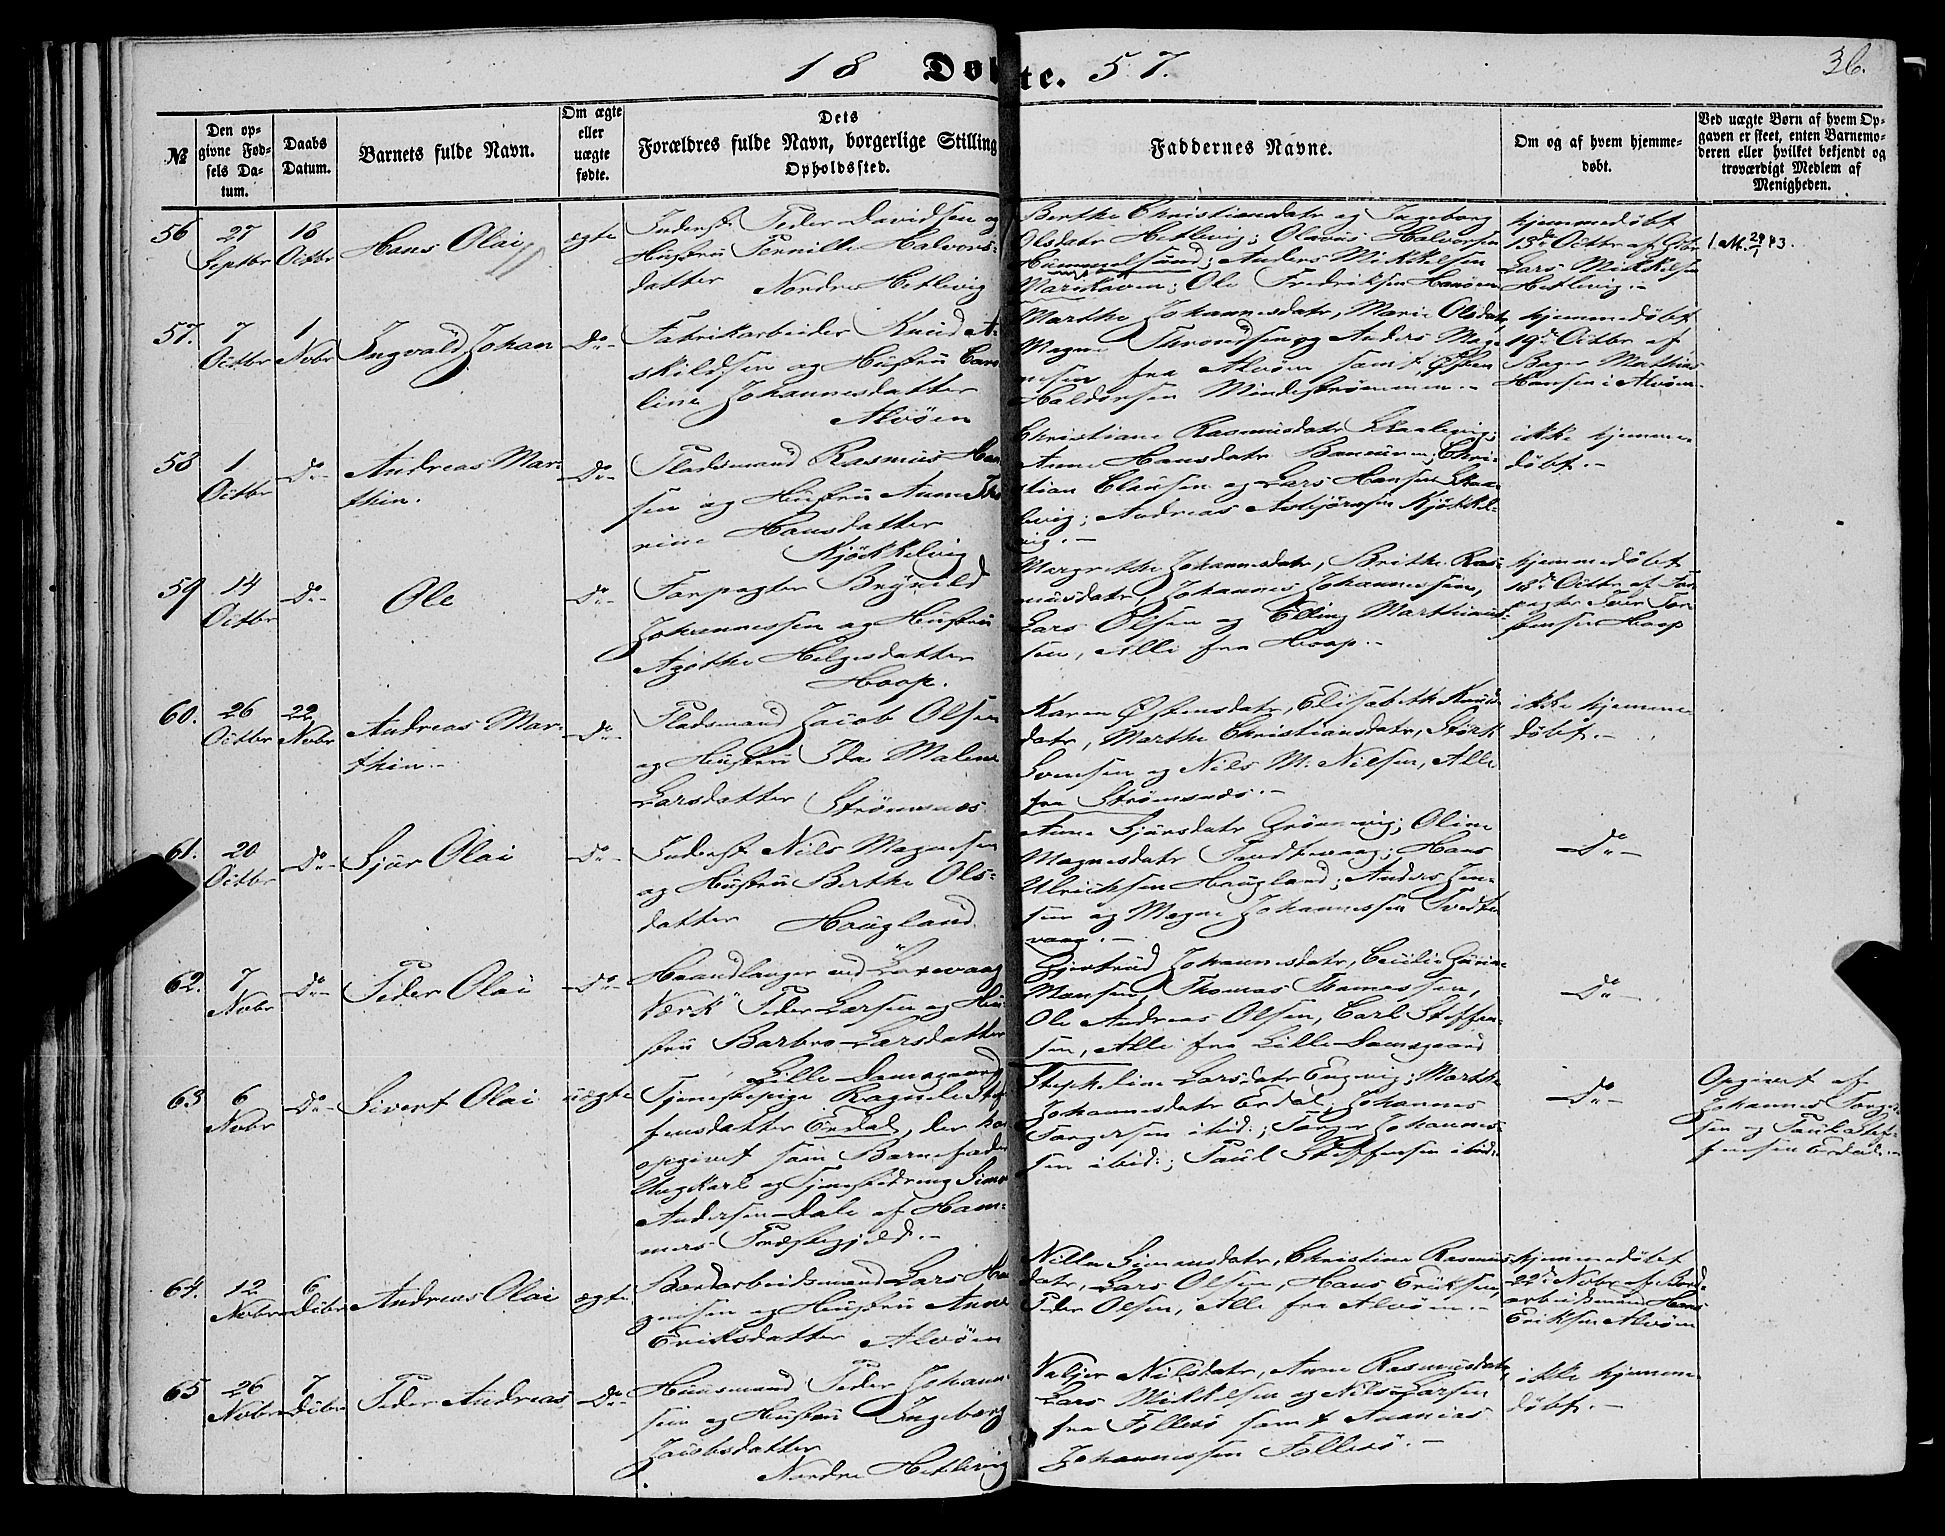 18 Døbte. 57.
36.
№
Den opgivne Fødsels Datum.
Daabs Datum.
Barnets fulde Navn.
Om ægte eller uægte fødte.
Dets Forældres fulde Navn, borgerlige Stilling Opholdssted.
Faddernes Navne.
Om og af hvem hjemmedøbt.
Ved uægte Børn af hvem Opgaven er skeet, enten Barnemoderen eller hvilket bekjendt og troværdigt Medlem af Menigheden.
56
27 Septbr
18 Octbr
Hans Olai
ægte
Inderst Peder Davidsen og
Hustru Pernille Halvors-
datter Nordre Hetlevig
Berthe Christiansdatr og Ingeborg
Olsdatr Hetlevig; Olavus Halvorsen
Hummelsund; Anders Mikkelsen
Marikoven; Ole Fredriksen Hanøen
hjemmedøbt
13de Octbr af
Lars Mikkelsen
Hetlevig.-
57.
7 Octbr
1 Nobr
Ingvald Johan
Do-
Fabrikarbeider Knud A-
skildsen og Hustru Caro
line Johannesdatter
Alvøen
Marthe Johannesdatr, Marie Olsdatr
Magne Throndsen og Anders Mag-
nesen fra Alvøen samt Østen
Haldorsen Mindestrømmen.-
hjemmedøbt
19de Octbr af
Bager Mathias
Hansen i Alvøen.
58
1 Octbr
Do-
Andreas Mar-
thin.
Do-
Pladsmand Rasmus Han
sen og Hustru Anne
rine Hansdatter
Kjøkkelvig
Christiane Rasmusdatr Skaalevig;
Anne Hansdatr; Chri-
stian Clausen og Lars Hansen Skaa-
levig; Andreas Asbjørnsen Kjøkkel-
vig.-
ikke hjemme-
døbt.-
59
14 Octbr
Do-
Ole
Do-
Forpagter Brynild
Johannessen og Hustru
Agathe Helgesdatter
Hoop.
Margrethe Johannesdatr, Brithe Ras-
musdatr, Johannes Johannessen,
Lars Olsen og Elling Marthinus-
sen, Alle fra Hoop.-
hjemmedøbt
18de Octbr af For
pagter Iver
Hoop
60.
26 Octbr
22 Nobr
Andreas Mar-
thin.-
Do-
Pladsmand Jacob Olsen
og Hustru Ida Malene
Larsdatter Strømsnæs
Karen Østensdatr, Elisabeth Knuds
datr, Marthe Christiansdatr, Størk
Svensen og Nils M. Nilsen, Alle
fra Strømsnæs.-
ikke hjemme-
døbt.-
61.
20 Octbr
Do-
Sjur Olai
Do-
Inderst Nils Magnesen
og Hustru Berthe Ols-
datter Hougland
Anne Sjursdatr; Oline
Magnesdatr; Hans
Ulrichsen Hougland; Anders Jen-
sen og Magne Johannessen
vaag.-
Do-
62.
7 Nobr
Do-
Peder Olai
Do-
Haandlanger ved "Laxevaag
Værk" Peder Larsen og Hu-
stru Barbro Larsdatter
Lille Damsgaard
Gjertrud Johannesdatr, Cecilie
Monsen, Thomas Thomessen,
Ole Andreas Olsen, Carl Steffen-
sen, Alle fra Lille Damsgaard
Do-
63
6 Nobr
Do-
Sivert Olai
uægte
Tjenestepige Ragnele Stef
fensdatter Erdal, der har
opgivet som Barnefader
Ungkarl og Tjenestedreng Simon
Andersen Dale af Ham-
mers Præstegjeld.-
Stepheline Larsdatr Engevig; Marthe
Johannesdatr Erdal, Johannes
Torgersen ibid:; Torger Johannes-
sen ibid:; Paul Steffensen ibid:
Do-
Opgivet af
Johannes Torger-
sen og Paul Stef-
fensen Erdal.-
64.
12 Nobr
6 Debr
Andreas Olai
ægte
Bordarbeidsmand Lars
og Hustru Anne
Eriksdatter Alvøen
Nille Simensdatr, Christine Rasmus-
datr, Lars Olsen, Hans Eriksen
Peder Olsen, Alle fra Alvøen.-
hjemmedøbt
22de Nobr af Bord-
arbeidsmand Hans
Eriksen Alvøen
65
26 Nobr
7 Debr
Peder Andreas
Do-
Huusmand Peder Johann-
sen og Hustru Ingeborg
Jacobsdatter
Nordre Hetlevig
Valjer Nilsdatr, Anne Rasmusdatr,
Lars Mikkelsen og Nils Larsen
fra Follesø samt Ananias
Johannessen Follesø.-
ikke hjemme-
døbt.-